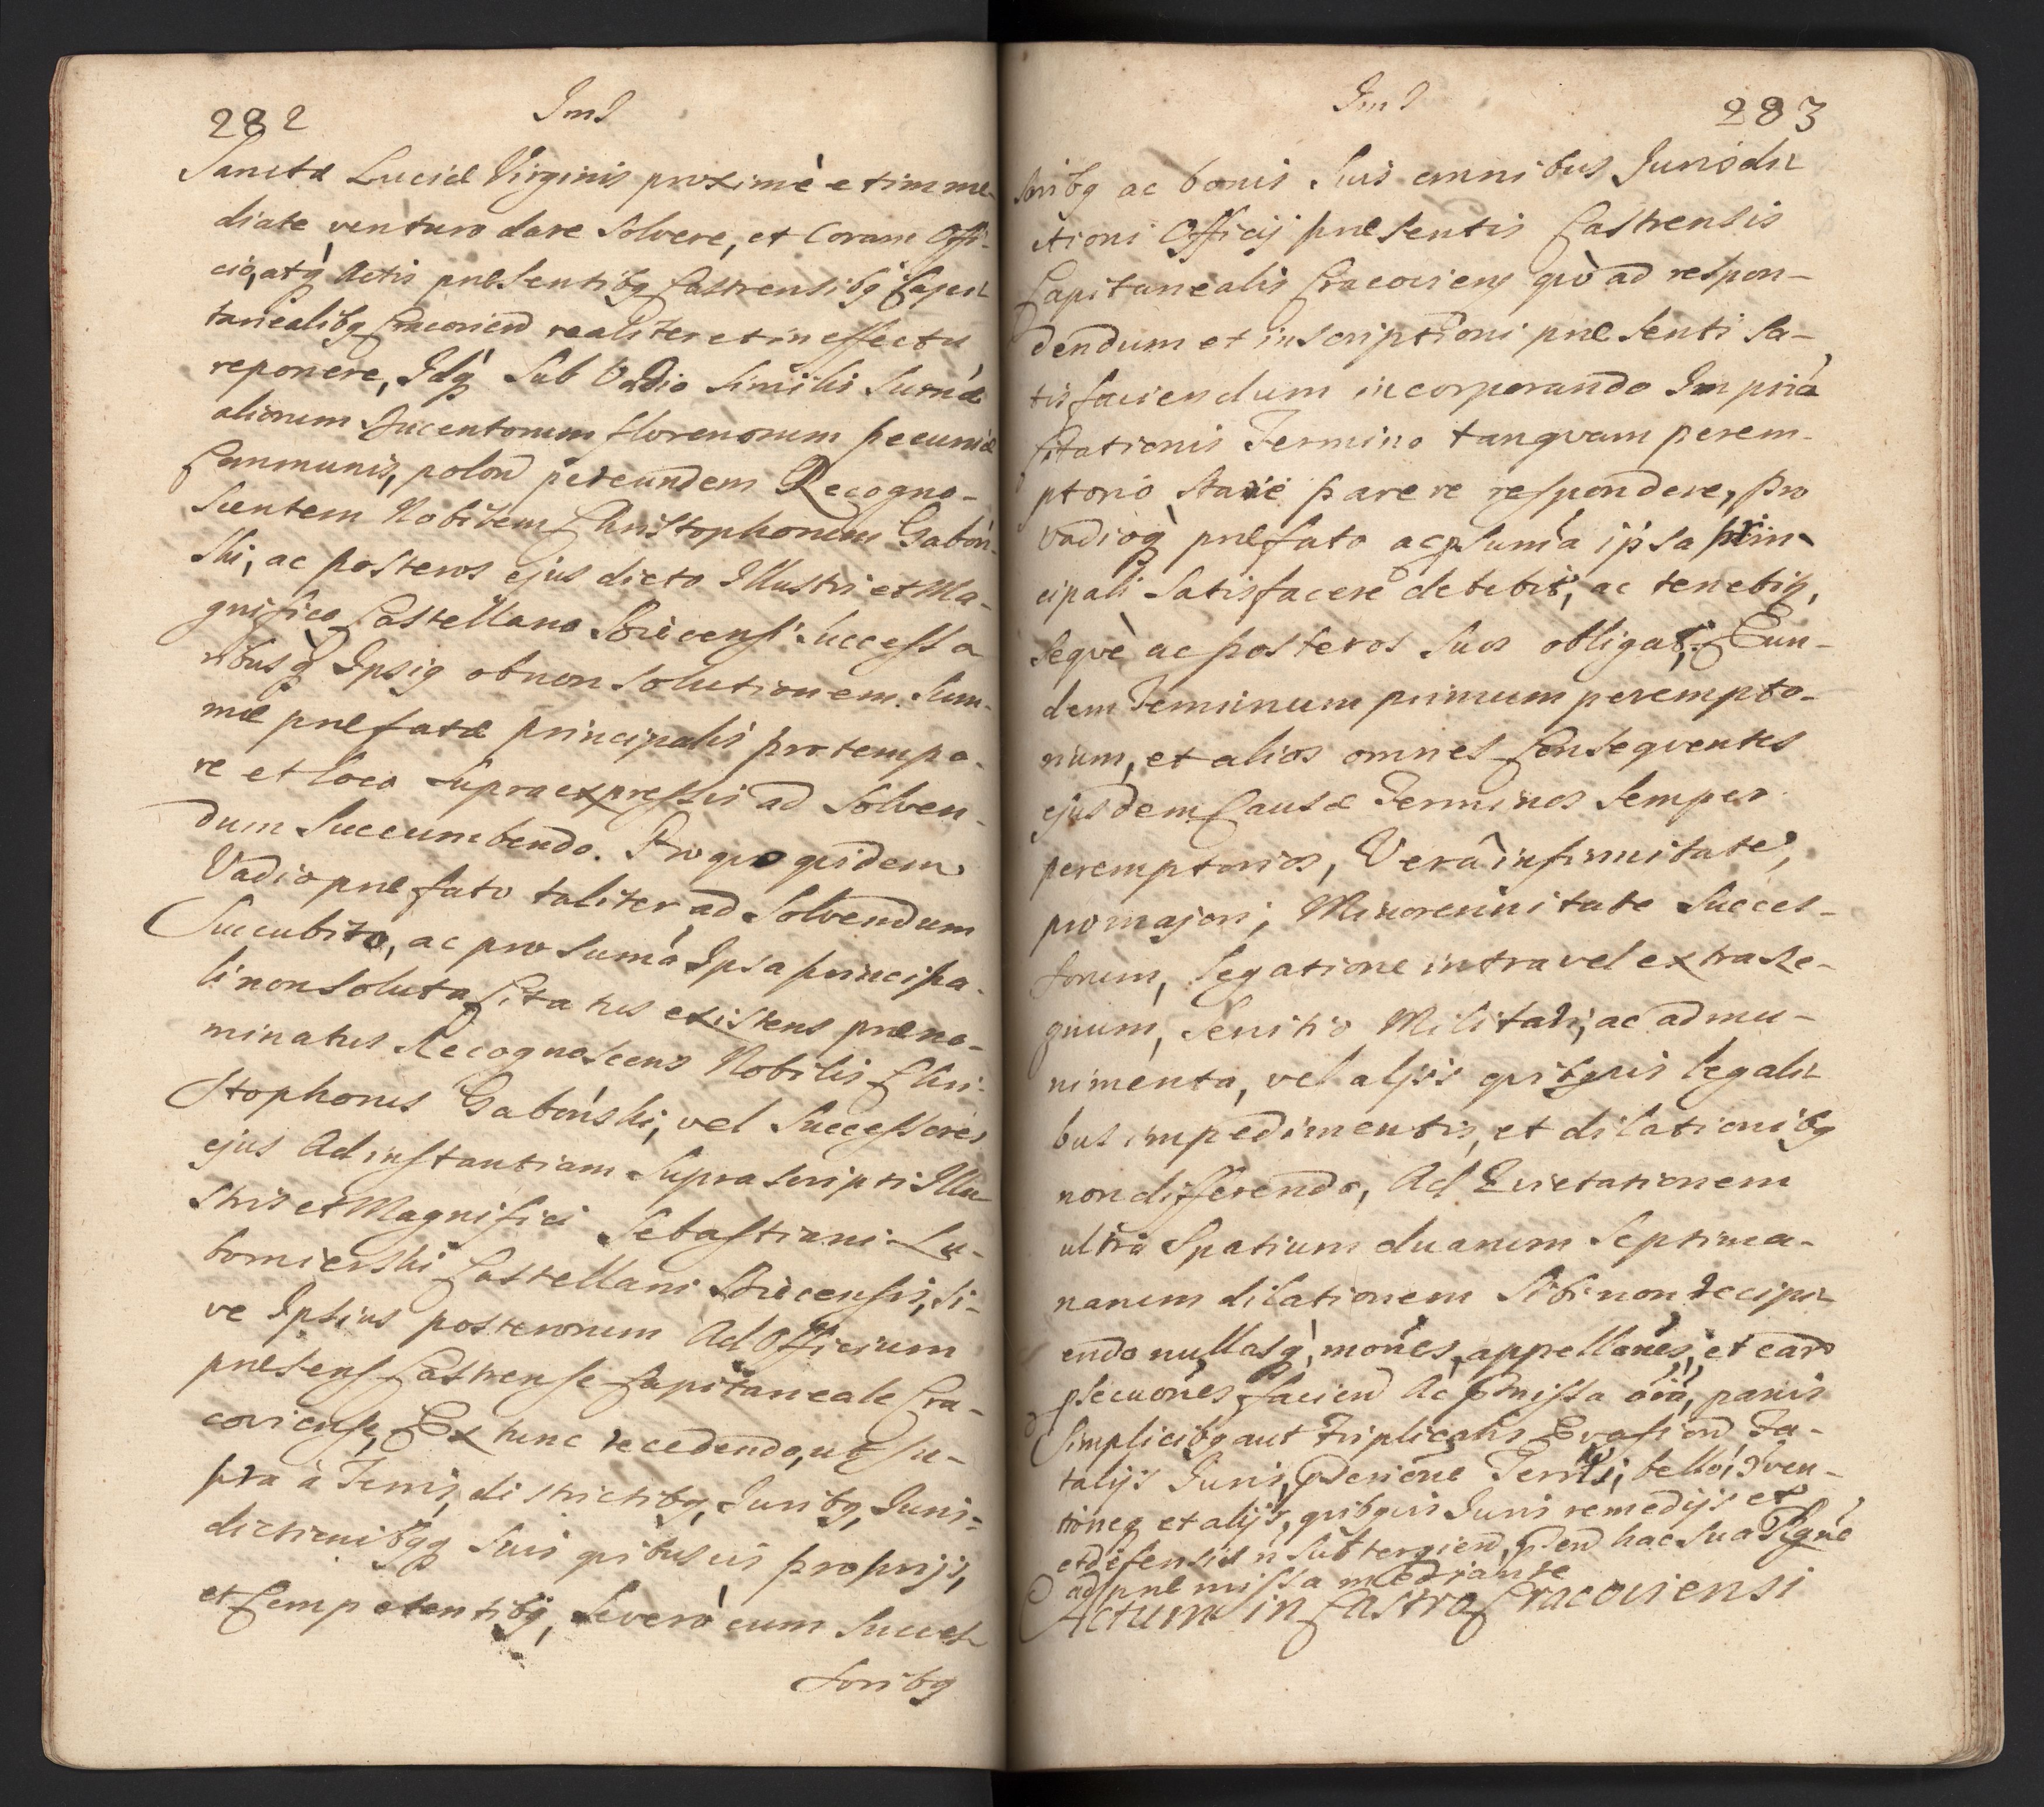 282
ImJ
Sanctæ Luciæ Virginis proximè et imme-
diate venturo dare solvere, et Coram Offi-
cio, atq́ Actis præsentibq Castrensibq Capi-
tanealibq Cracovien realiter et in effectu
reponere, Idq́ Sub Vadio simili sum̃æ
aliorum ducentorum florenorum pecuniæ
Communis, polon per eundem Recogno-
scentem Nobilem Christophorum Gaboń-
ski, ac posteros ejus dicto Illustri et Ma-
gnifico Castellano Biecensi Successo
ribusq́ Ipsiq ob non solutionem sum-
mæ præfatæ principalis pro tempo-
re et loco supra expressis ad solven-
dum succumbendo. Pro quo quidem
Vadio præfato taliter ad solvendum
Succubito, ac pro sum̃a Ipsa principa-
li non soluta Citatus existens præno-
minatus Recognoscens Nobilis Chri-
stophorus Gaboński, vel Successores
ejus Ad instantiam supra scripti Illu
stris et Magnifici Sebastiani Lu-
bomierski Castellani Biecensis, si-
ve Ipsius posterorum Ad Officium
præsens Castrense Capitaneale Cra-
coviense, Ex tunc recedendo, ut su-
pra à Terris, districtibq, Juribq, Juris-
dictionibqq suis quibusvis proprijs,
et Competentibq, se verò cum succes
soribq
ImJ
283
soribq ac bonis suis omnibus Jurisdi
ctioni Officij præsentis Castrensis
Capitanealis Cracovien quò ad respon-
dendum et inscriptioni præsenti sa-
tisfaciendum incorporando In pria
Citationis Termino tanquam perem-
ptorio stare parere respondere, pro
Vadioq̀ præfato ac sum̃a ipsa prin-
cipali satisfacere debebit, ac tenebit,
seque ac posteros suos obligat, Eun-
dem Terminum primum perempto-
rium, et alios omnes Consequentes
ejusdem Causæ Terminos semper
peremptorios, Verâ infirmitate,
pro majori, Minorennitate succes-
sorum, legatione intra vel extra Re-
gnum, servitio Militari, ac ad mu-
nimenta, vel alijs quibqvis legali
bus impedimentis, et dilationibq
non differendo, Ad Evictationem
ultra Spatium duarum septima-
narum dilationem sibi non recipi
endo nullasq́, mones, appellanes, et eard
psecuones faciend Ac pmissa oia, panis
simplicibq aut Triplicatis Evasion Fa-
talijs Juris, Terrli, bello, Iven-
tioneq et alijs, quibqvis Juris remedijs et
et defensis n subtergiend, hac sua
ad præmissa mediante
Actum in Castro Cracoviensi